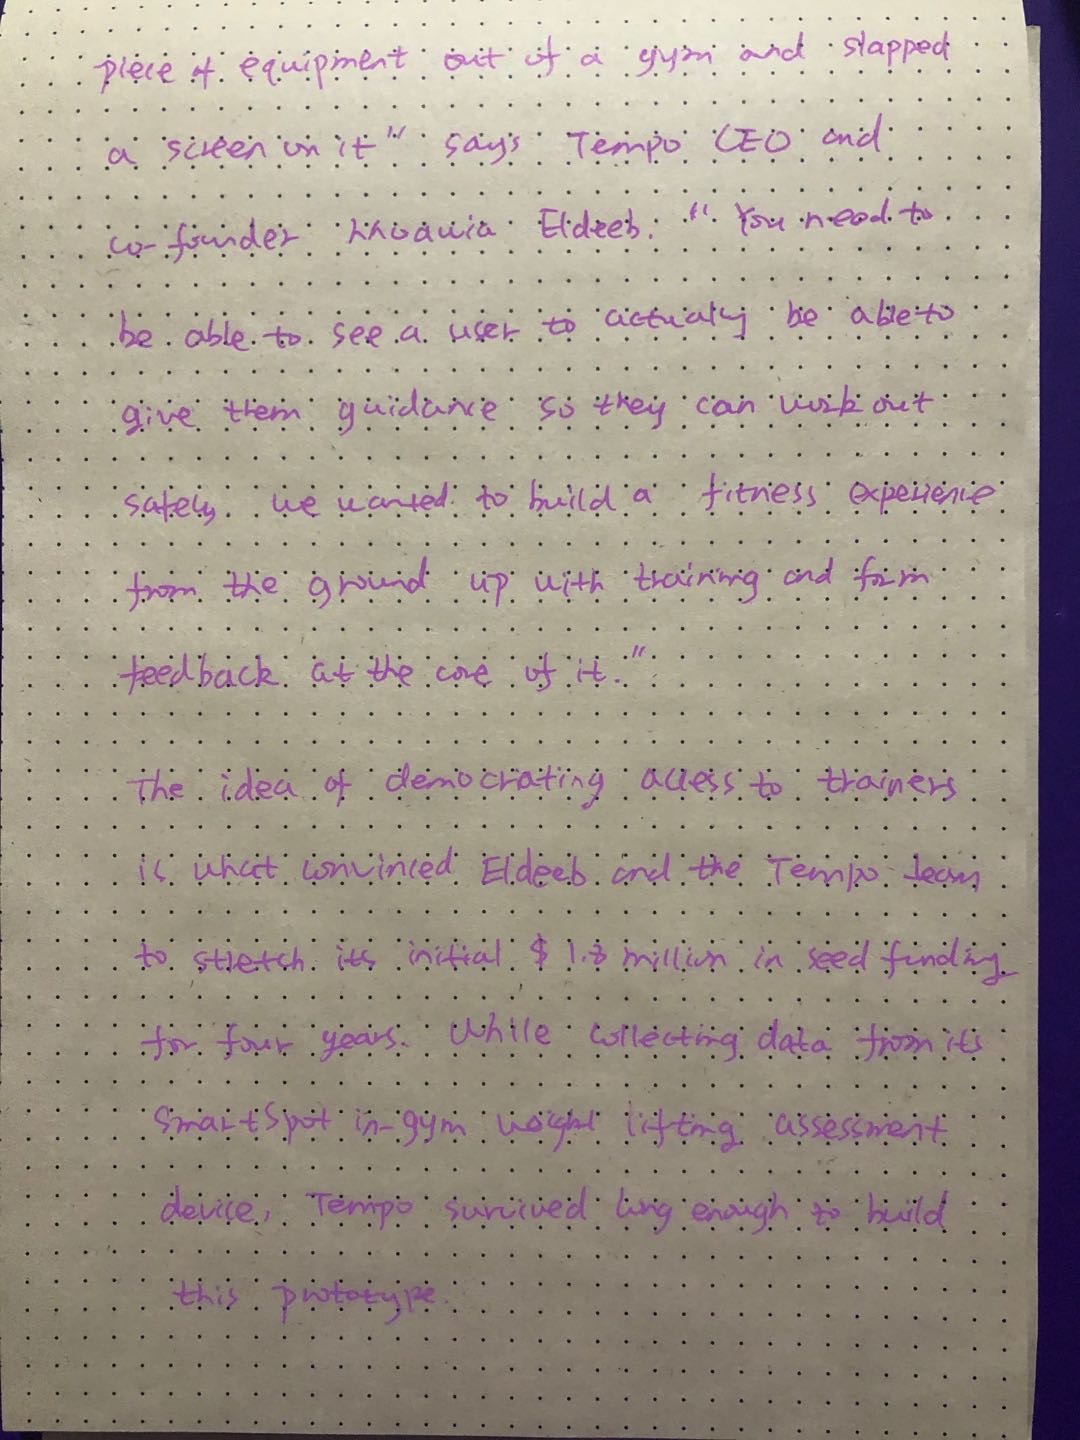 piece of equipment out of a gym and slapped
a screen on it" says Tempo CEO and
co-founder Moawia Eldeeb. "You need to
be able to see a user to actually be able to
give them guidance so they can work out
safely. We wanted to build a fitness experience
from the ground up with training and form
feedback at the core of it."
The idea of democrating access to trainers
is what convinced Eldeeb and the Tempo team
to stretch its initial $1.8 million in seed funding
for four years. While collecting data from its
SmartSpot in-gym weight lifting assessment
device, Tempo survived long enough to build
this prototype.